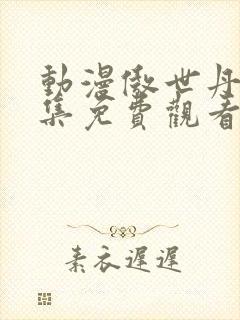 動漫傲世丹
集免費觀看
素衣遲遲